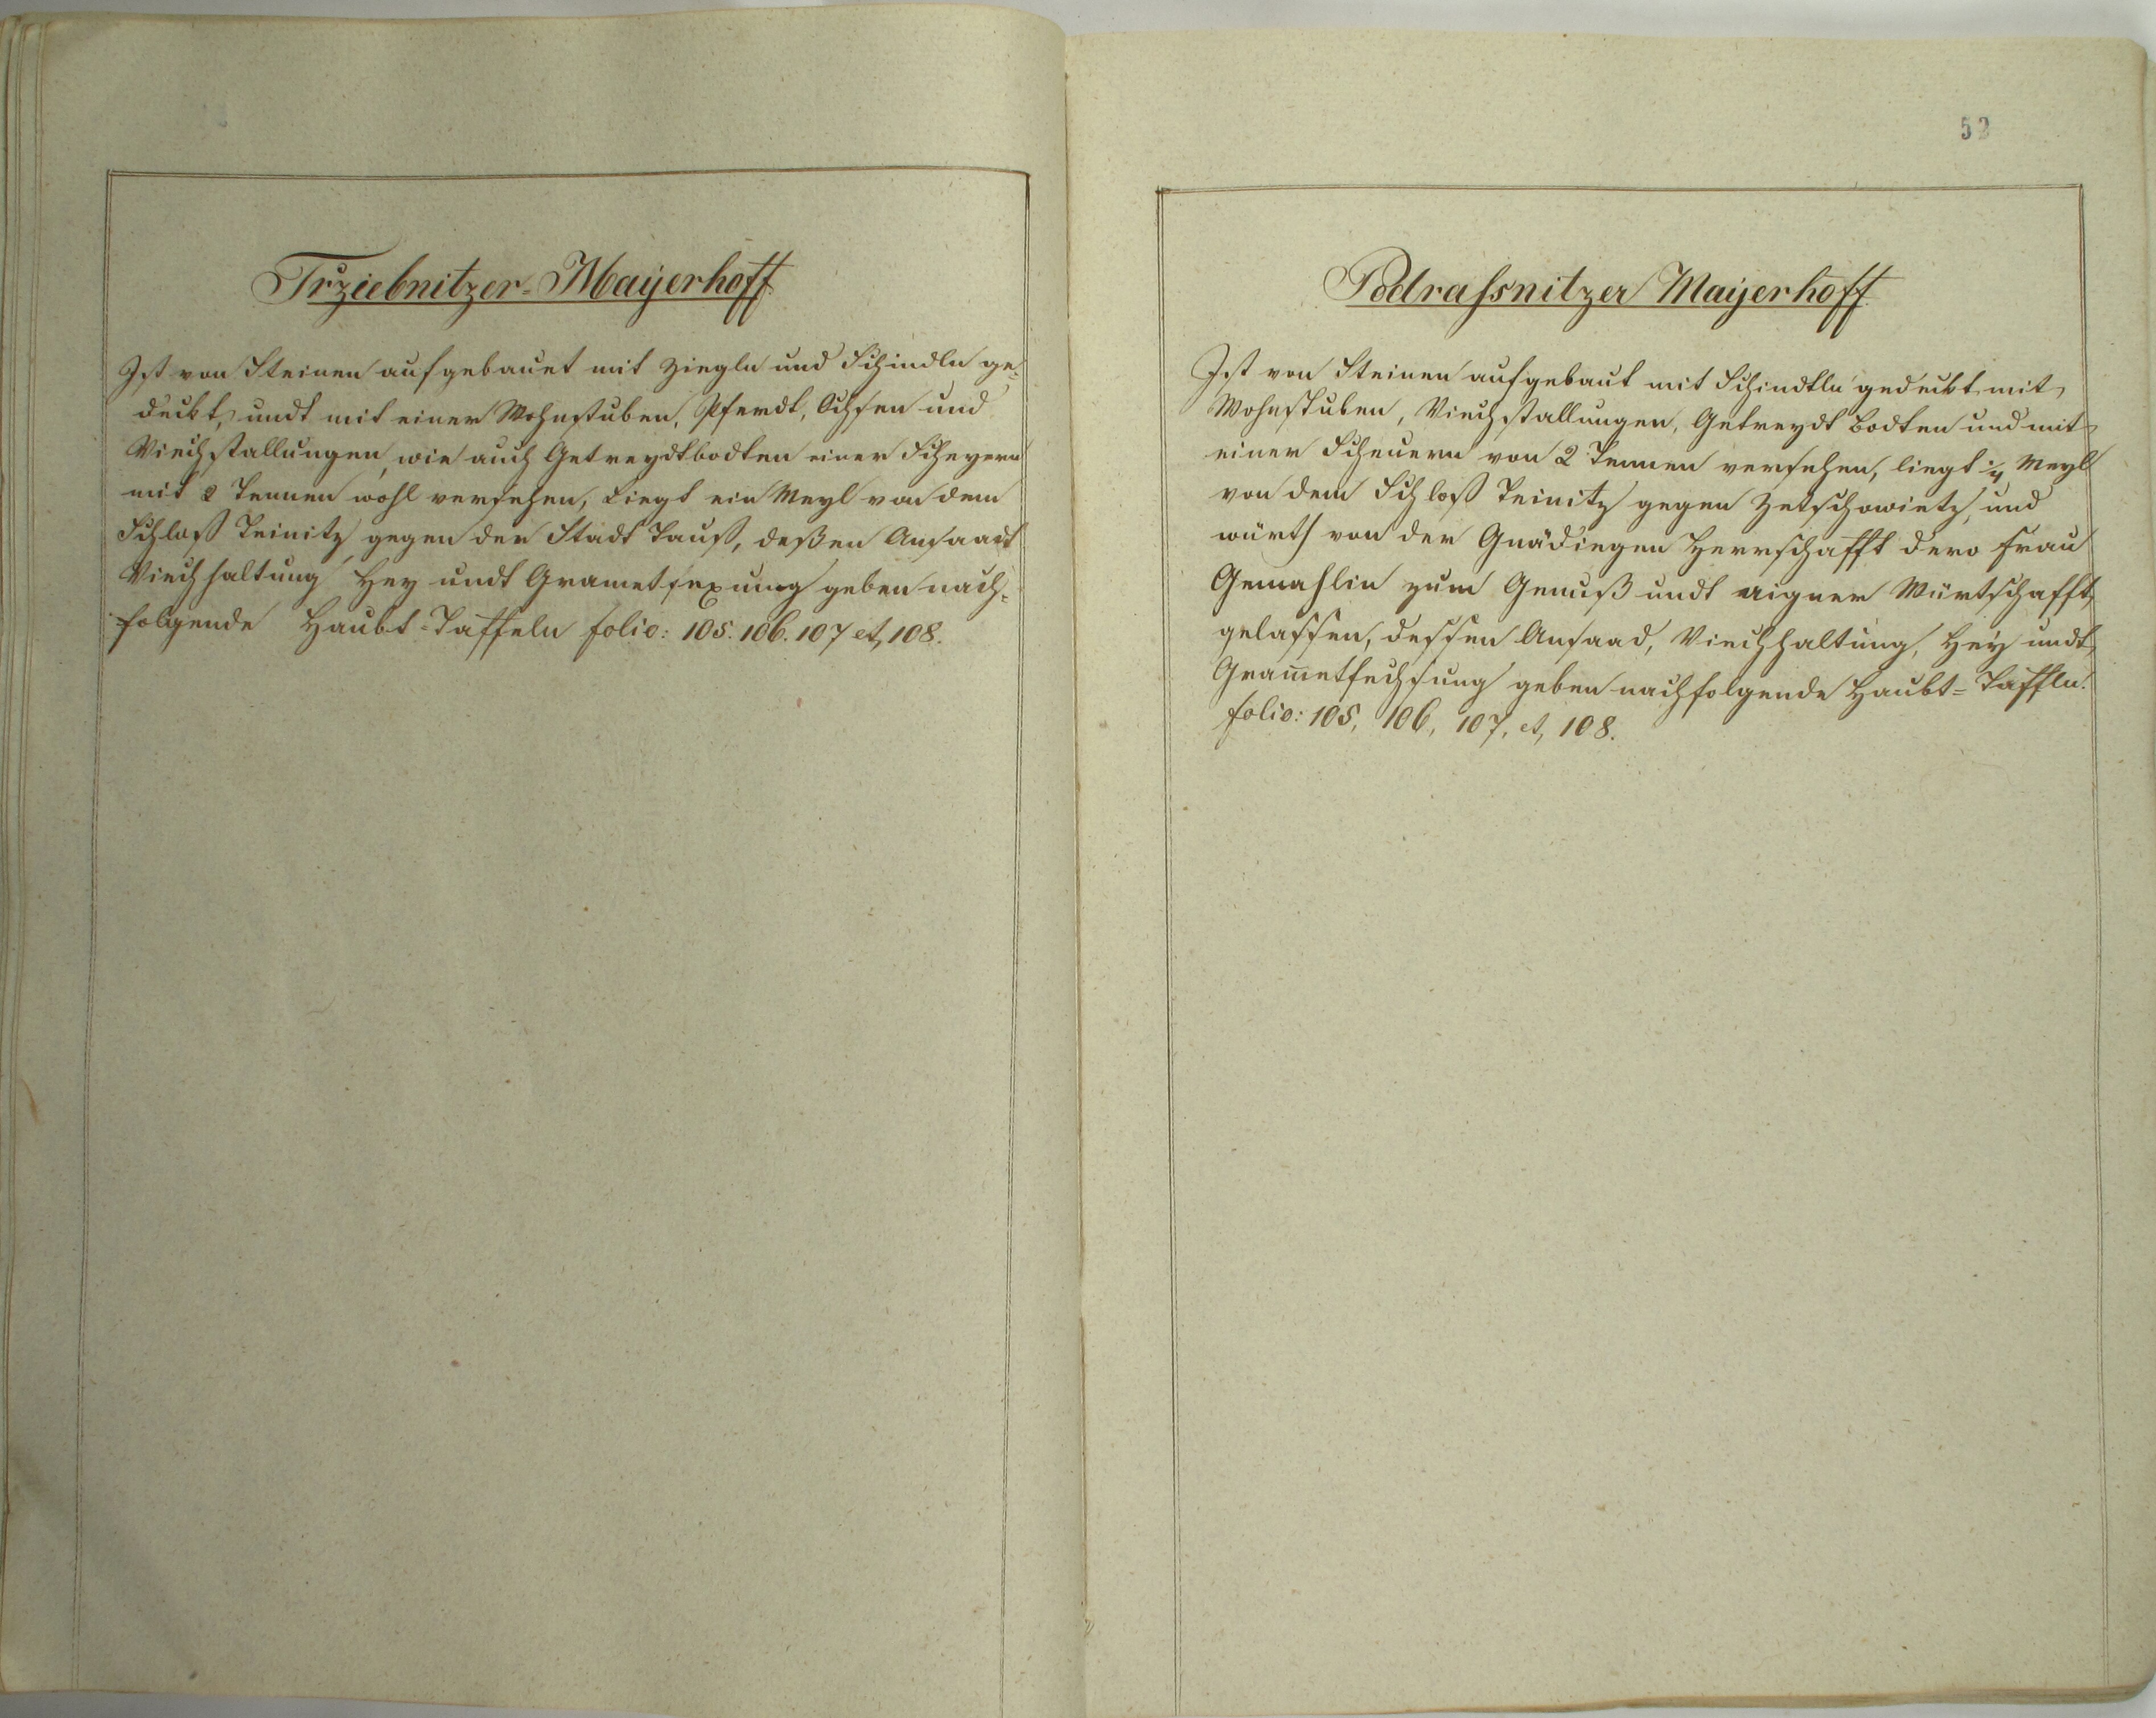 Trziebnitzer-Mayerhoff
Ist von Steinen aufgebauet mit Ziegln und Schindln ge-
deckt, undt mit einer Wohnstuben, Pferdt, Ochsen und
Viechstallungen, wie auch Getreydtbodten einer Scheyern
mit 2 Tennen wohl versehen, Liegt ein Meyl von dem
Schloß Teinitz gegen der Stadt Tauß, deßen Ansaadt
Viechhaltung, Hey undt Grametfexung geben nach-
folgende Haubt-Taffeln folio: 105. 106. 107 et, 108.
53
Podrassnitzer Mayerhoff
Ist von Steinen aufgebaut mit Schindtln gedeckt mit
Wohnstuben, Viechstallungen, Getreydt Bodten und mit
einer Scheuern von 2 Tennen versehen, liegt 1/4 Meyl
von dem Schloß Teinitz gegen Zetschowietz, und
würth von der Gnädiegen Herrschafft dero Frau
Gemahlin zum Genuß undt aigner Würtschafft
gelassen, dessen Ansaad, Viechhaltung, Hey undt
Gram̄etfechsung geben nachfolgende Haubt-Taffln.
folio: 105, 106, 107, et, 108.